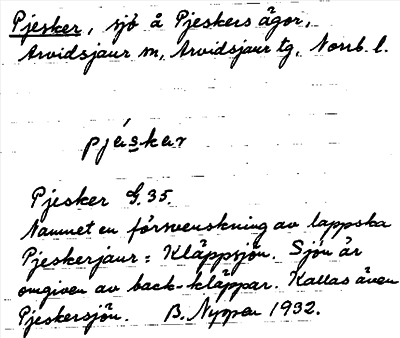 Pjesker, sjö å Pjeskers ägor,
Arvidsjaur sn, Arvidsjaur tg, Norrb. l.
pjéskar
Pjesker G.35.
Namnet en försvenskning av lappska
Pjeskerjaur = Kläppsjön. Sjön är
omgiven av back-kläppar. Kallas även
Pjeskersjön. B. 1932.